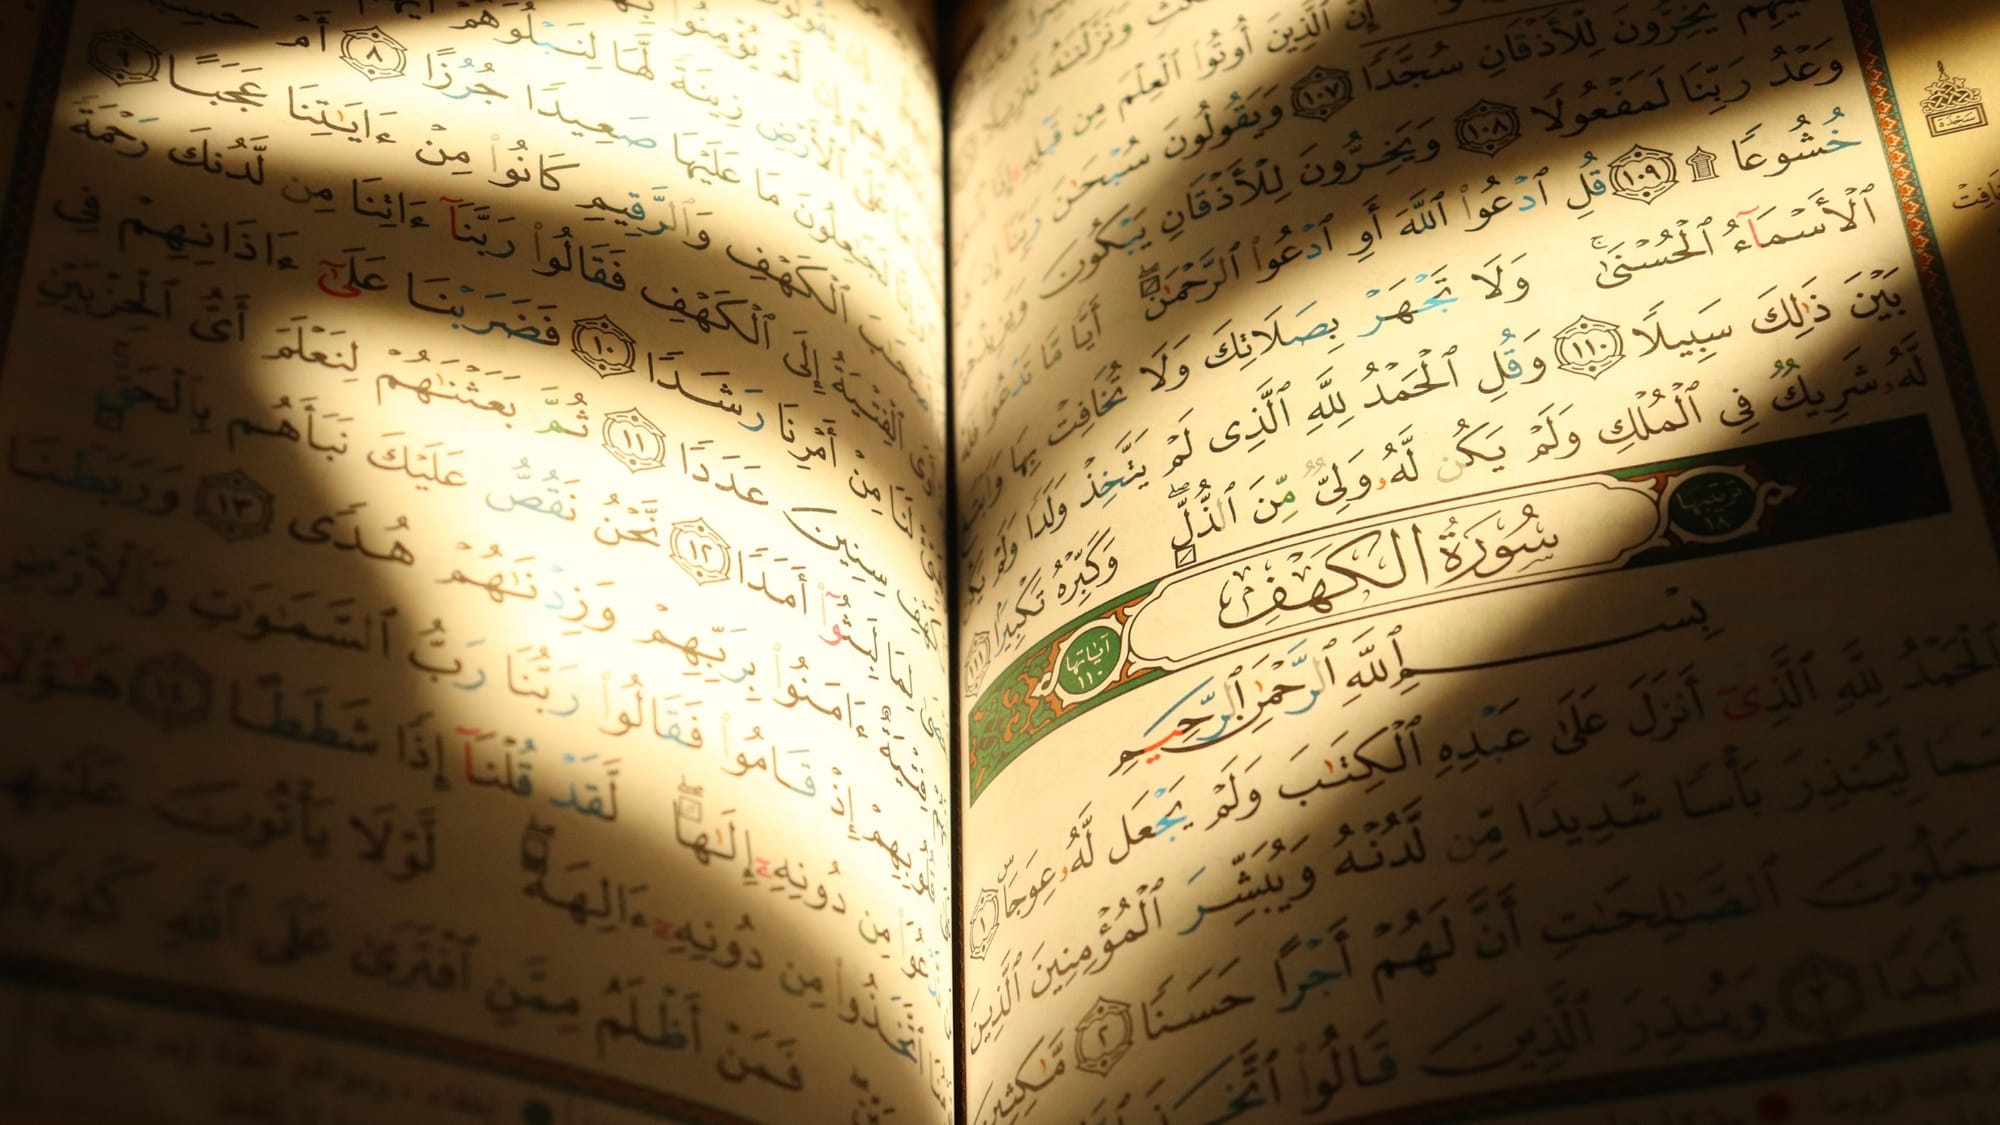 وَنَزَّلْنَٰهُ تَنزِيلًا
إِنَّ ٱلَّذِينَ أُوتُوا۟ ٱلْعِلْمَ مِن قَبْلِهِۦٓ إِذَا
عَلَيْهِمْ يَخِرُّونَ لِلْأَذْقَانِ سُجَّدًا ١٠٧ وَيَقُولُونَ سُبْحَٰنَ رَبِّنَآ إِن
وَعْدُ رَبِّنَا لَمَفْعُولًا ١٠٨ وَيَخِرُّونَ لِلْأَذْقَانِ يَبْكُونَ وَيَزِيدُهُمْ
خُشُوعًا ۩ ١٠٩ قُلِ ٱدْعُوا۟ ٱللَّهَ أَوِ ٱدْعُوا۟ ٱلرَّحْمَٰنَ ۖ أَيًّا مَّا تَدْعُوا۟ فَلَهُ
ٱلْأَسْمَآءُ ٱلْحُسْنَىٰ ۚ وَلَا تَجْهَرْ بِصَلَاتِكَ وَلَا تُخَافِتْ بِهَا وَٱبْتَغِ
بَيْنَ ذَٰلِكَ سَبِيلًا ١١٠ وَقُلِ ٱلْحَمْدُ لِلَّهِ ٱلَّذِى لَمْ يَتَّخِذْ وَلَدًا وَلَمْ يَكُن
لَّهُۥ شَرِيكٌ فِى ٱلْمُلْكِ وَلَمْ يَكُن لَّهُۥ وَلِىٌّ مِّنَ ٱلذُّلِّ ۖ وَكَبِّرْهُ تَكْبِيرًا ١١١
ترتيبها ١٨ سُورَةُ الكَهْفِ آياتها ١١٠
بِسْمِ ٱللَّهِ ٱلرَّحْمَٰنِ ٱلرَّحِيمِ
ٱلْحَمْدُ لِلَّهِ ٱلَّذِىٓ أَنزَلَ عَلَىٰ عَبْدِهِ ٱلْكِتَٰبَ وَلَمْ يَجْعَل لَّهُۥ عِوَجَا ۜ ١
قَيِّمًا لِّيُنذِرَ بَأْسًا شَدِيدًا مِّن لَّدُنْهُ وَيُبَشِّرَ ٱلْمُؤْمِنِينَ ٱلَّذِينَ
يَعْمَلُونَ ٱلصَّٰلِحَٰتِ أَنَّ لَهُمْ أَجْرًا حَسَنًا ٢ مَّٰكِثِينَ
أَبَدًا ٣ وَيُنذِرَ ٱلَّذِينَ قَالُوا۟ ٱتَّخَذَ
سَجْدَة
عَلَى ٱلْأَرْضِ زِينَةً لَّهَا لِنَبْلُوَهُمْ
لَجَٰعِلُونَ مَا عَلَيْهَا صَعِيدًا جُرُزًا ٨ أَمْ حَسِبْتَ
ٱلْكَهْفِ وَٱلرَّقِيمِ كَانُوا۟ مِنْ ءَايَٰتِنَا عَجَبًا ٩
ٱلْفِتْيَةُ إِلَى ٱلْكَهْفِ فَقَالُوا۟ رَبَّنَآ ءَاتِنَا مِن لَّدُنكَ رَحْمَةً
لَنَا مِنْ أَمْرِنَا رَشَدًا ١٠ فَضَرَبْنَا عَلَىٰٓ ءَاذَانِهِمْ فِى
ٱلْكَهْفِ سِنِينَ عَدَدًا ١١ ثُمَّ بَعَثْنَٰهُمْ لِنَعْلَمَ أَىُّ ٱلْحِزْبَيْنِ
أَحْصَىٰ لِمَا لَبِثُوٓا۟ أَمَدًا ١٢ نَّحْنُ نَقُصُّ عَلَيْكَ نَبَأَهُم بِٱلْحَقِّ
فِتْيَةٌ ءَامَنُوا۟ بِرَبِّهِمْ وَزِدْنَٰهُمْ هُدًى ١٣ وَرَبَطْنَا
قُلُوبِهِمْ إِذْ قَامُوا۟ فَقَالُوا۟ رَبُّنَا رَبُّ ٱلسَّمَٰوَٰتِ وَٱلْأَرْضِ
نَّدْعُوَا۟ مِن دُونِهِۦٓ إِلَٰهًا ۖ لَّقَدْ قُلْنَآ إِذًا شَطَطًا ١٤ هَٰٓؤُلَآءِ
ٱتَّخَذُوا۟ مِن دُونِهِۦٓ ءَالِهَةً ۖ لَّوْلَا يَأْتُونَ عَلَيْهِم
فَمَنْ أَظْلَمُ مِمَّنِ ٱفْتَرَىٰ عَلَى ٱللَّهِ كَذِبًا